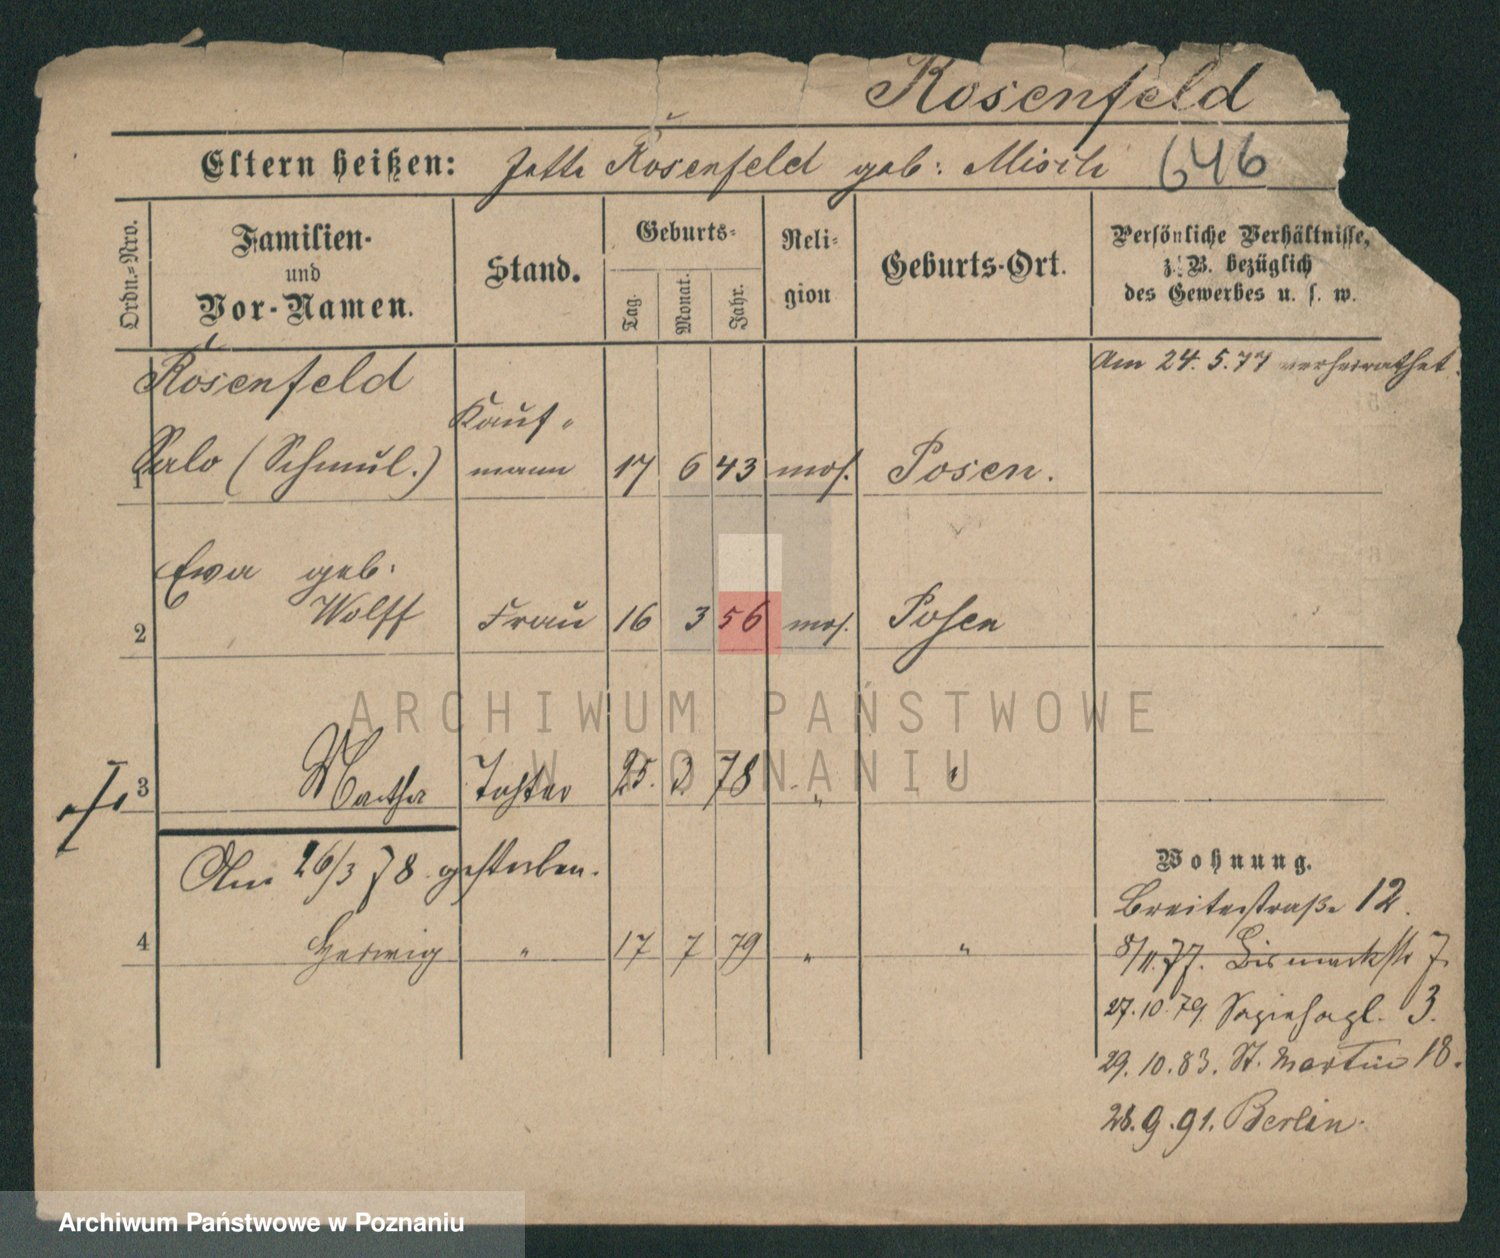 Rosenfeld
Eltern heißen: Jette Rosenfeld geb: Misch 646
Ordn.-Nro.
Familien-
und
Vor-Namen.
Stand.
Geburts-
Tag.
Monat.
Jahr.
Reli-
gion
Geburts-Ort.
Persönliche Verhältnisse,
z. B. bezüglich
des Gewerbes u. s. w.
Rosenfeld
Am 24. 5. 77 verheirathet.
Kauf-
1 Salo (Schmul.) mann 17 6 43 mos. Posen.
Ewa geb.
2 Wolff Frau 16 3 56 mos. Posen
3 Martha Tochter 25. 3 78 " "
Am 26/3 78 gestorben.
4 Herwig " 17 7 79 " "
Wohnung.
Breitestraße 12.
8/11. 77. Bismarckstr 7.
27. 10. 79. Sapiehapl. 3.
29. 10. 83. St. Martin 18.
28. 9. 91. Berlin.
ARCHIWUM PAŃSTWOWE
W POZNANIU
Archiwum Państwowe w Poznaniu